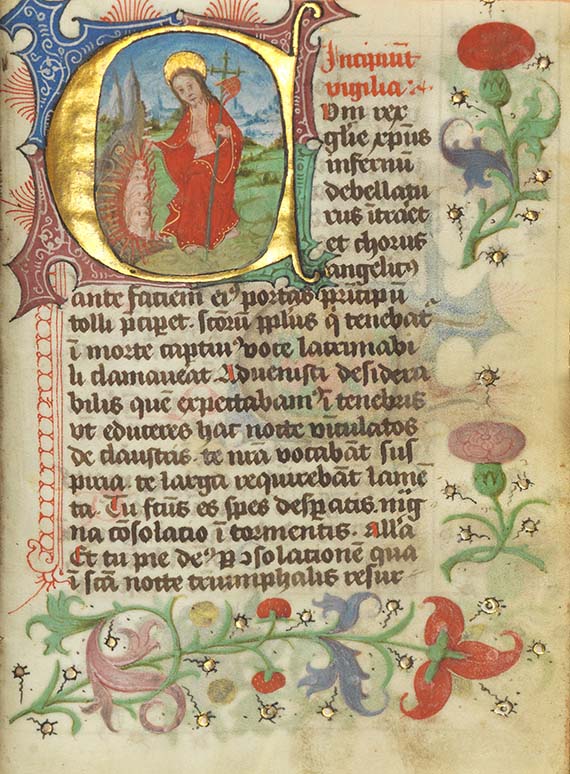 Incipiūt
vigilia
CVm rex
glīe xp̄us
infernū
debellatu
rus ītraēt
et chorus
angelicꝰ
ante faciem eiꝰ portas prīcipū
tolli p̄ciꝑet. sc̄oru pplus q̄ tenebat᷑
ī morte captiuꝰ voce lacrimabi
li clamaueat. Aduenisti desidera
bilis quē expectabamꝰ ī tenebris
vt educeres hac nocte vīculatos
de claustris. te nr̄a vocabāt sus
piria. te larga requirebāt lamē
ta. Tu fc̄us es spes despatis. mg
na cōsolacio ī tormentis. Alla
Et tu pie deꝰ ꝑ ꝯsolationē qua
ī scā nocte triumphalis resur